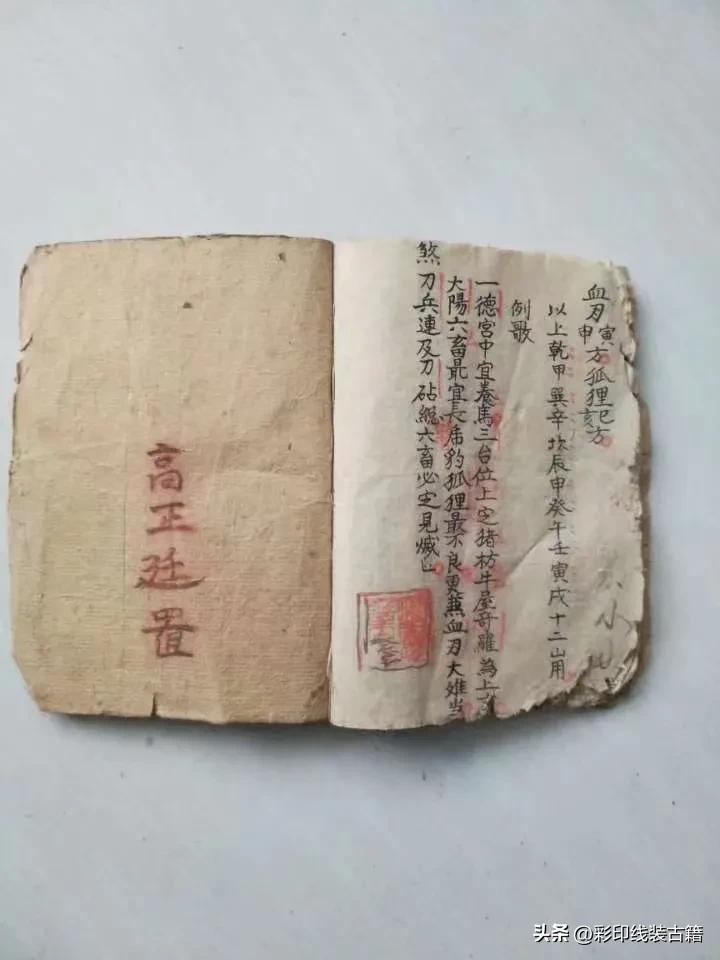 血刃寅申方狐狸巳亥方
以上乾甲巽辛坎辰申癸午壬寅戌十二山用
例歌
一德宮中宜養馬三台位上定猪枋牛屋奇羅為上
太陽六畜最宜長虎豹狐狸最不良更兼血刃大雄当
煞刀兵連及刀砧総六畜必定見灾凶
高正廷置
头条 @彩印线装古籍